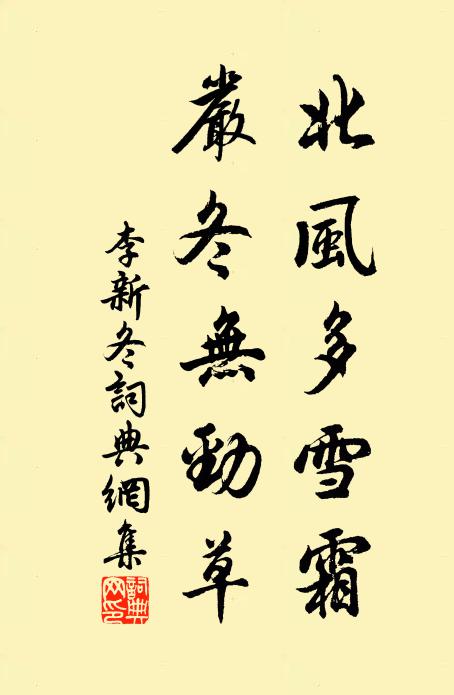 北風多雪霜
嚴冬無勁草
李新冬詞典網集
詞典